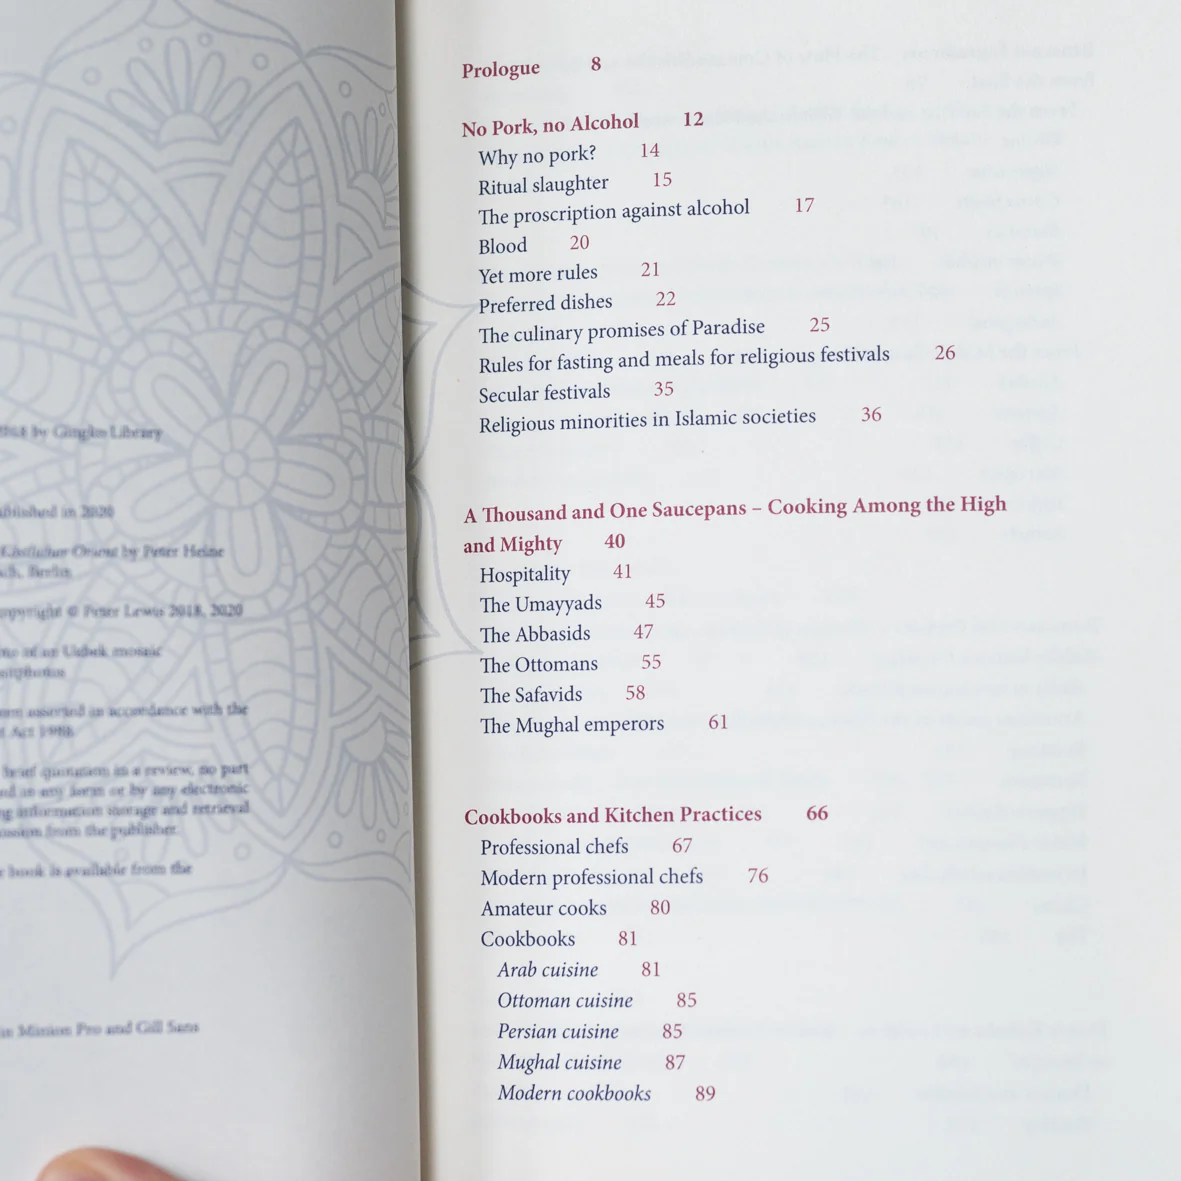 by Gingko Library
Published in 2020
Orient by Peter Heine
Berlin
copyright © Peter Lewis 2018, 2020
of an Uzbek mosaic
asserted in accordance with the
Act 1988
brief quotation in a review, no part
in any form or by any electronic
information storage and retrieval
from the publisher.
book is available from the
in Minion Pro and Gill Sans
Prologue 8
No Pork, no Alcohol 12
Why no pork? 14
Ritual slaughter 15
The proscription against alcohol 17
Blood 20
Yet more rules 21
Preferred dishes 22
The culinary promises of Paradise 25
Rules for fasting and meals for religious festivals 26
Secular festivals 35
Religious minorities in Islamic societies 36
A Thousand and One Saucepans – Cooking Among the High
and Mighty 40
Hospitality 41
The Umayyads 45
The Abbasids 47
The Ottomans 55
The Safavids 58
The Mughal emperors 61
Cookbooks and Kitchen Practices 66
Professional chefs 67
Modern professional chefs 76
Amateur cooks 80
Cookbooks 81
Arab cuisine 81
Ottoman cuisine 85
Persian cuisine 85
Mughal cuisine 87
Modern cookbooks 89